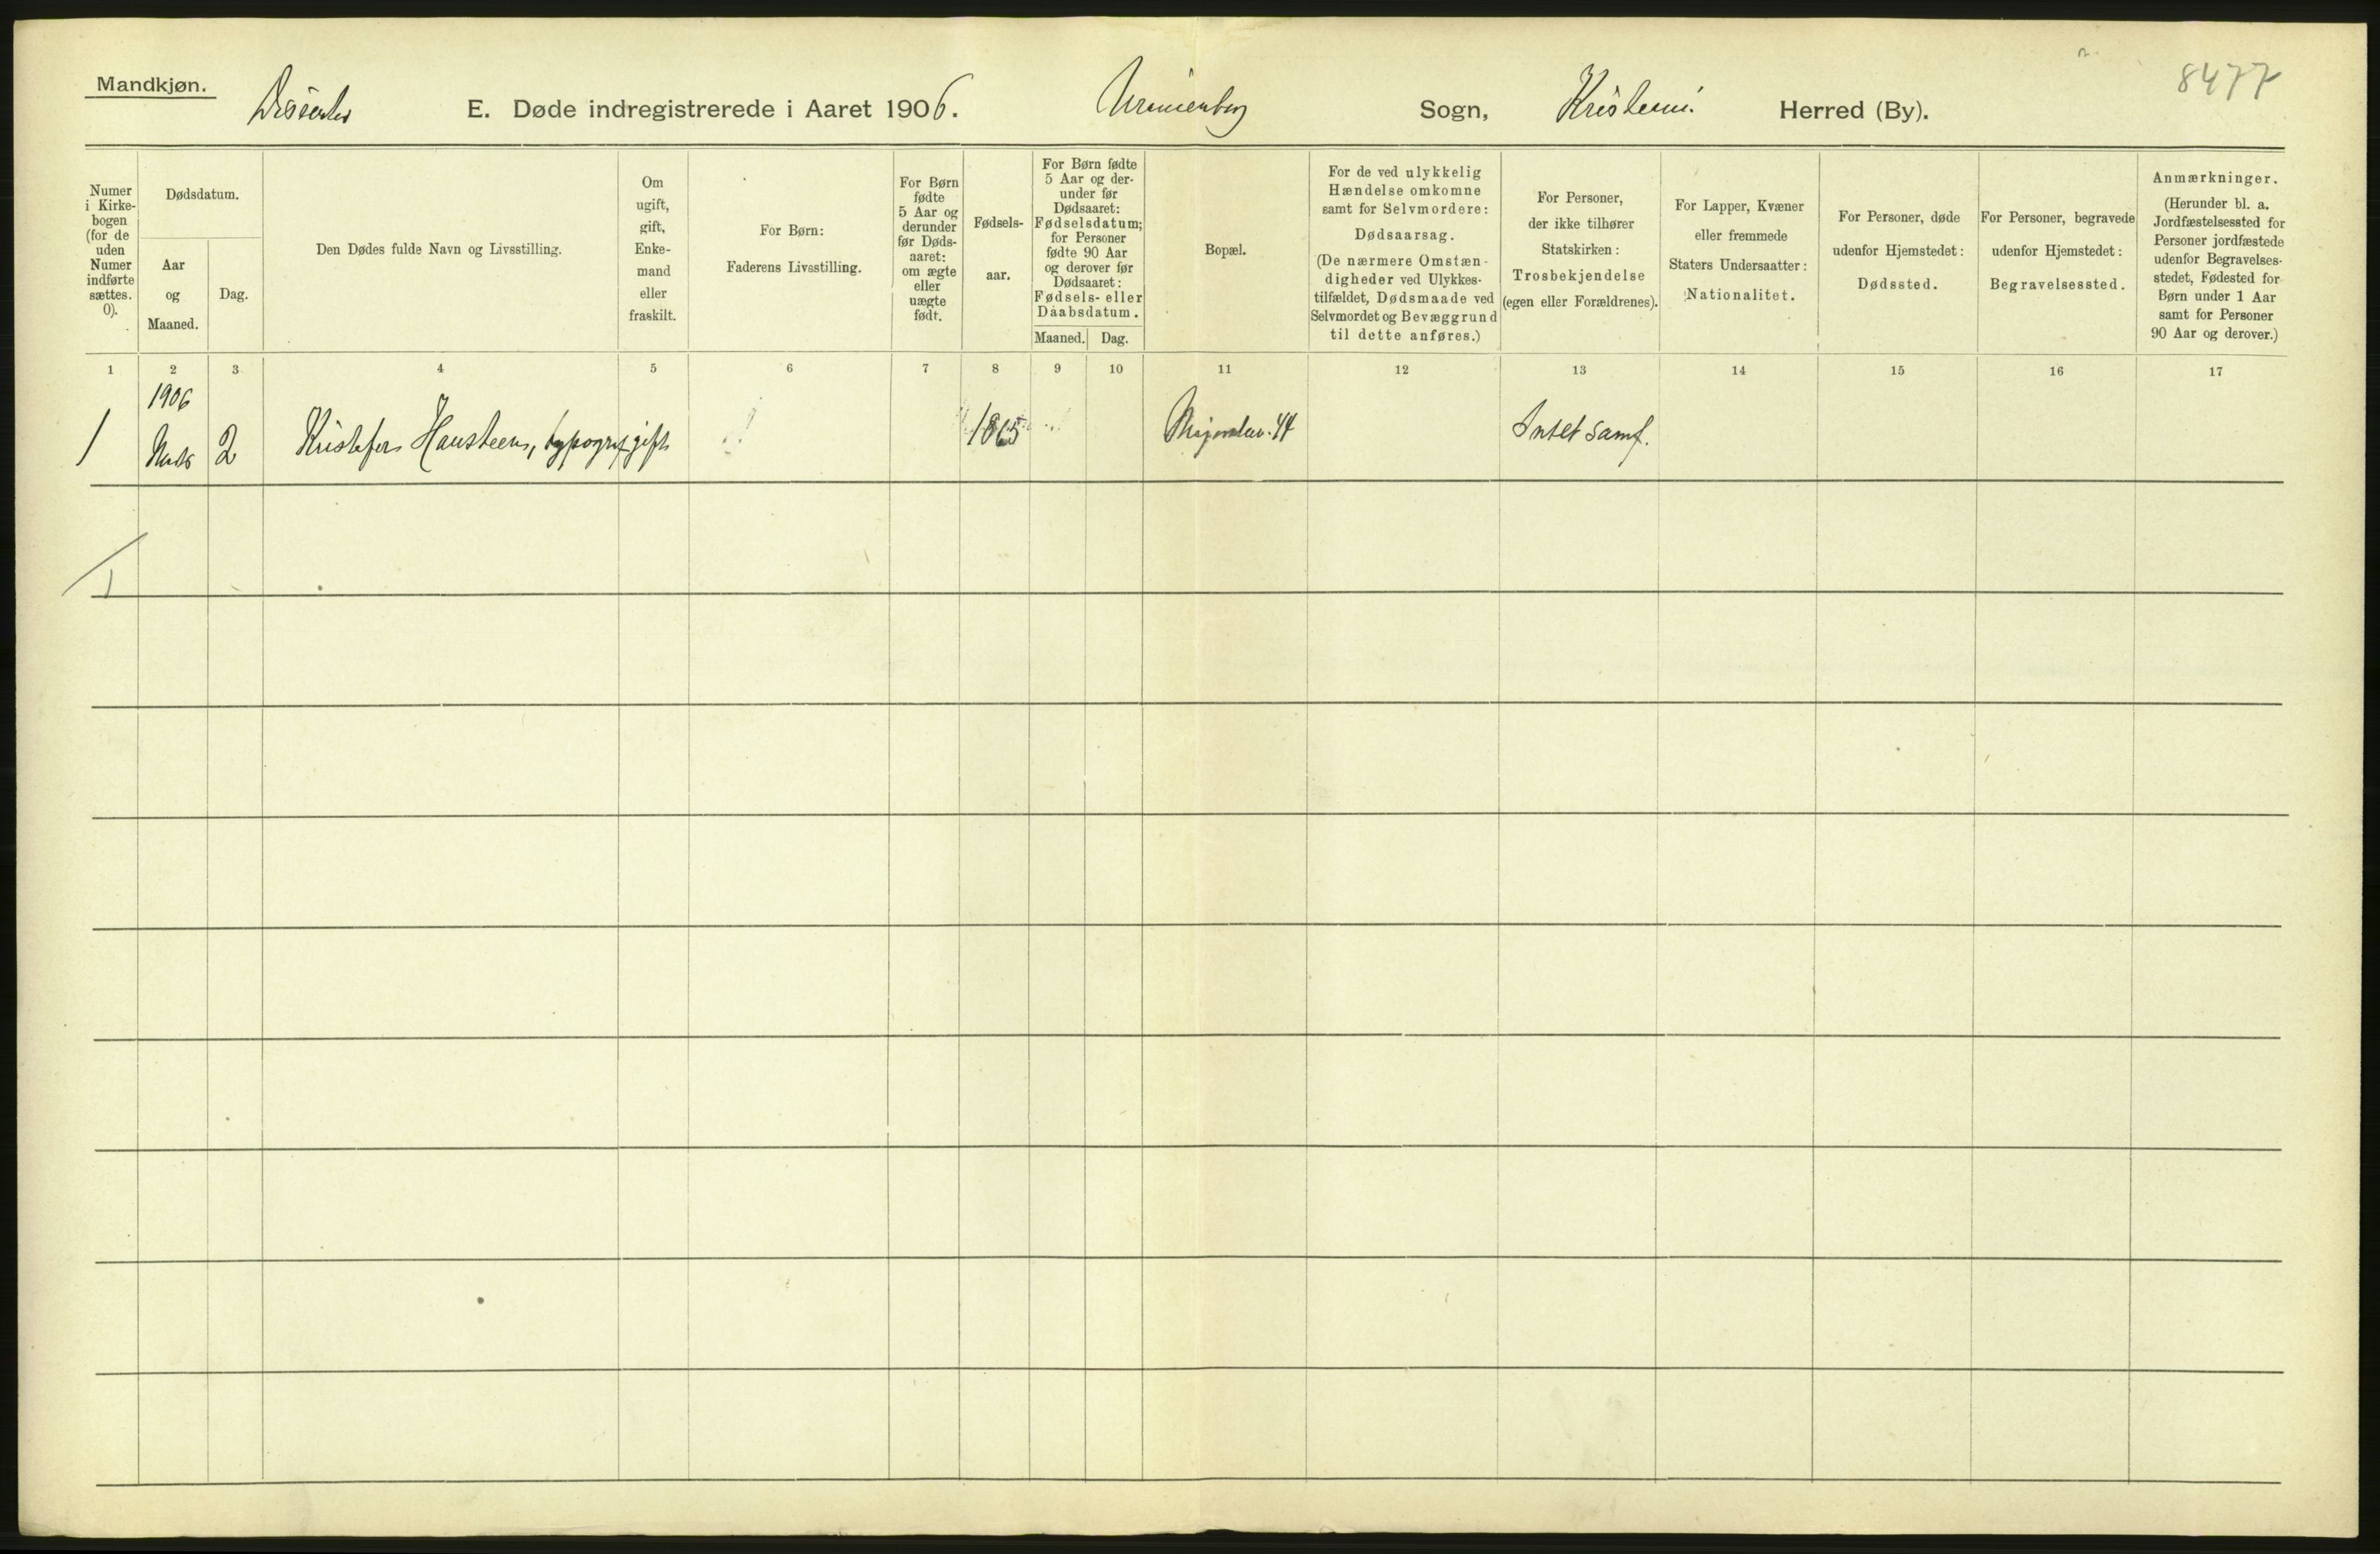 Mandkjøn.
8477
E. Døde indregistrerede i Aaret 1906. Uranienborg Sogn, Kristiania Herred (By).
Numer i Kirke-bogen (for de uden Numer indførte sættes. 0).
Dødsdatum.
Aar og Maaned.
Dag.
Den Dødes fulde Navn og Livsstilling.
Om ugift, gift, Enke-mand eller fraskilt.
For Børn: Faderens Livsstilling.
For Børn fødte 5 Aar og derunder før Døds-aaret: om ægte eller uægte født.
Fødsels-aar.
For Børn fødte 5 Aar og der-under før Dødsaaret: Fødselsdatum; for Personer fødte 90 Aar og derover før Dødsaaret: Fødsels- eller Daabsdatum.
Maaned. Dag.
Bopæl.
For de ved ulykkelig Hændelse omkomne samt for Selvmordere: Dødsaarsag. (De nærmere Omstæn-digheder ved Ulykkes-tilfældet, Dødsmaade ved Selvmordet og Bevæggrund til dette anføres.)
For Personer, der ikke tilhører Statskirken: Trosbekjendelse (egen eller Forældrenes).
For Lapper, Kvæner eller fremmede Staters Undersaatter: Nationalitet.
For Personer, døde udenfor Hjemstedet: Dødssted.
For Personer, begravede udenfor Hjemstedet: Begravelsessted.
Anmærkninger. (Herunder bl. a. Jordfæstelsessted for Personer jordfæstede udenfor Begravelses-stedet, Fødested for Børn under 1 Aar samt for Personer 90 Aar og derover.)
1 2 3 4 5 6 7 8 9 10 11 12 13 14 15 16 17
1906
1 Marts 2 Kristofer Hansteen, typograf gift 1865 44 Intet samf.
1